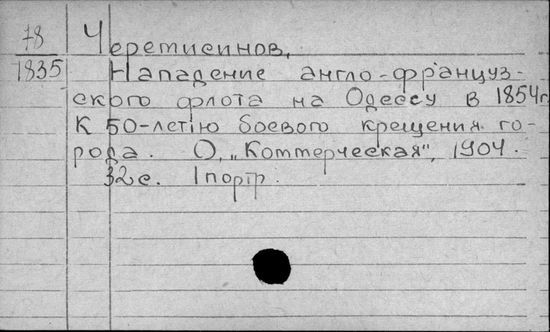 78
1835
Черетисинов,
Нападение англо-француз-
ского флота на Одессу в 1854г.
К 50-летію боевого крещения го-
рода. О, „Коттерческая", 1904.
32с. 1портр.